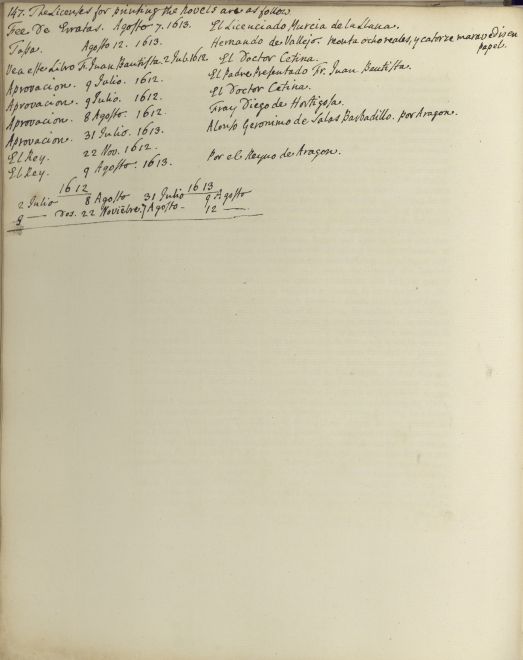 147. The Licenses for printing the novels are as follow
Fee De Erratas. Agosto 7. 1613. El Licenciado Murcia de la Llana.
Tasa. Agosto 12. 1613. Hernando de Vallejo. monta ocho reales, y catorze maravedis en papel.
Vea este Libro Fr. Juan Bautista 2 Jul. 1612 El Doctor Cetina.
Aprovacion. 9 Julio. 1612. El Padre Presentado Fr. Juan Bautista.
Aprovacion. 9 Julio. 1612. El Doctor Cetina.
Aprovacion. 8 Agosto. 1612. Fray Diego de Hortigosa.
Aprovacion. 31 Julio. 1613. Alonso Geronimo de Salas Barbadillo. por Aragon.
El Rey. 22 Nov. 1612.
El Rey. 9 Agosto. 1613. Por el Reyno de Aragon.
1612 1613
2 Julio 8 Agosto 31 Julio 9 Agosto
9 — dos. 22 Noviẽbre. 7 Agosto — 12 —